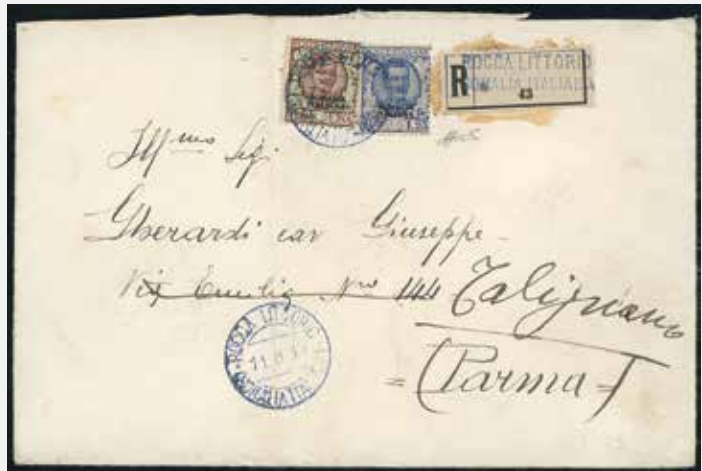 ROCCA LITTORIO
SOMALIA ITALIANA
R
43
Ill mo Sig
Gherardi cav Giuseppe
Via Emilia Nro 144 Talignano
(Parma)
ROCCA LITTORIO
11